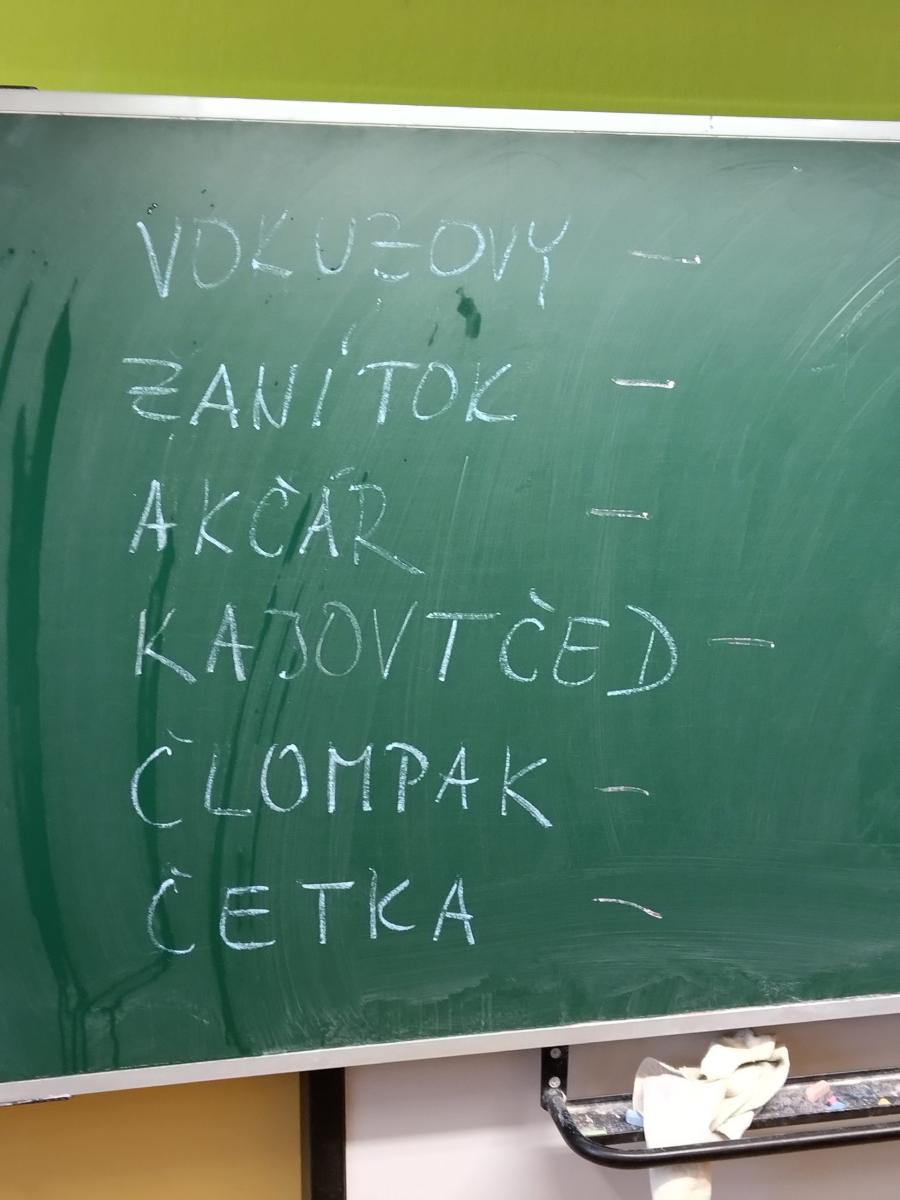 VOKUZOVY -
ZANÍTOK -
AKČÁR -
KAJOVTČED -
ČLOMPAK -
ČETKA -